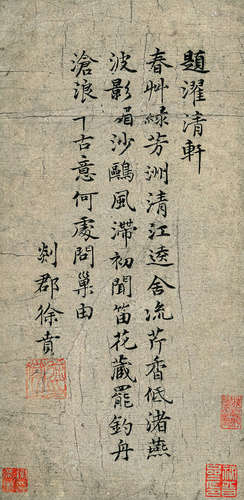 題濯清軒
春艸綠芳洲清江遶舍流芹香低渚燕
波影眉沙鷗風滯初聞笛花藏罷釣舟
滄浪千古意何處問巢由
剡郡徐賁